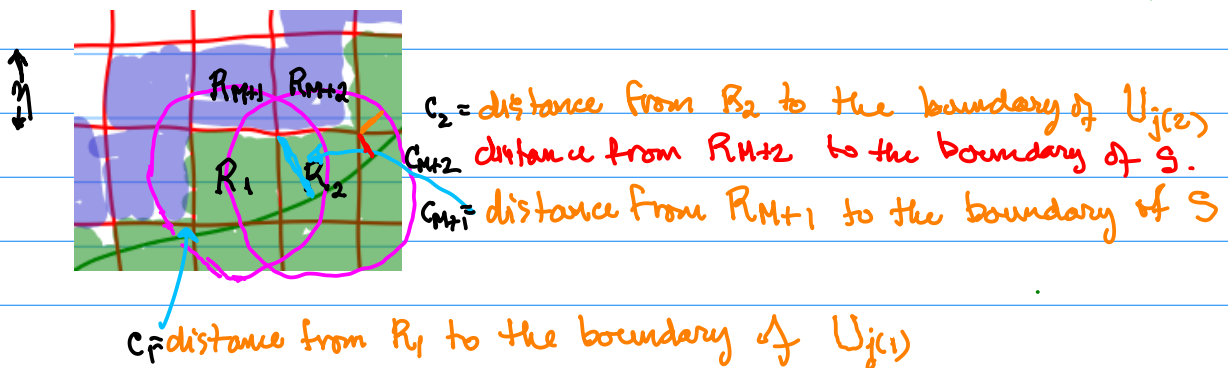 η
R_{M+1} R_{M+2}
R_1 R_2
C_2 = distance from R_2 to the boundary of U_{j(2)}
C_{M+2} distance from R_{M+2} to the boundary of S.
C_{M+1} = distance from R_{M+1} to the boundary of S
C_1 = distance from R_1 to the boundary of U_{j(1)}